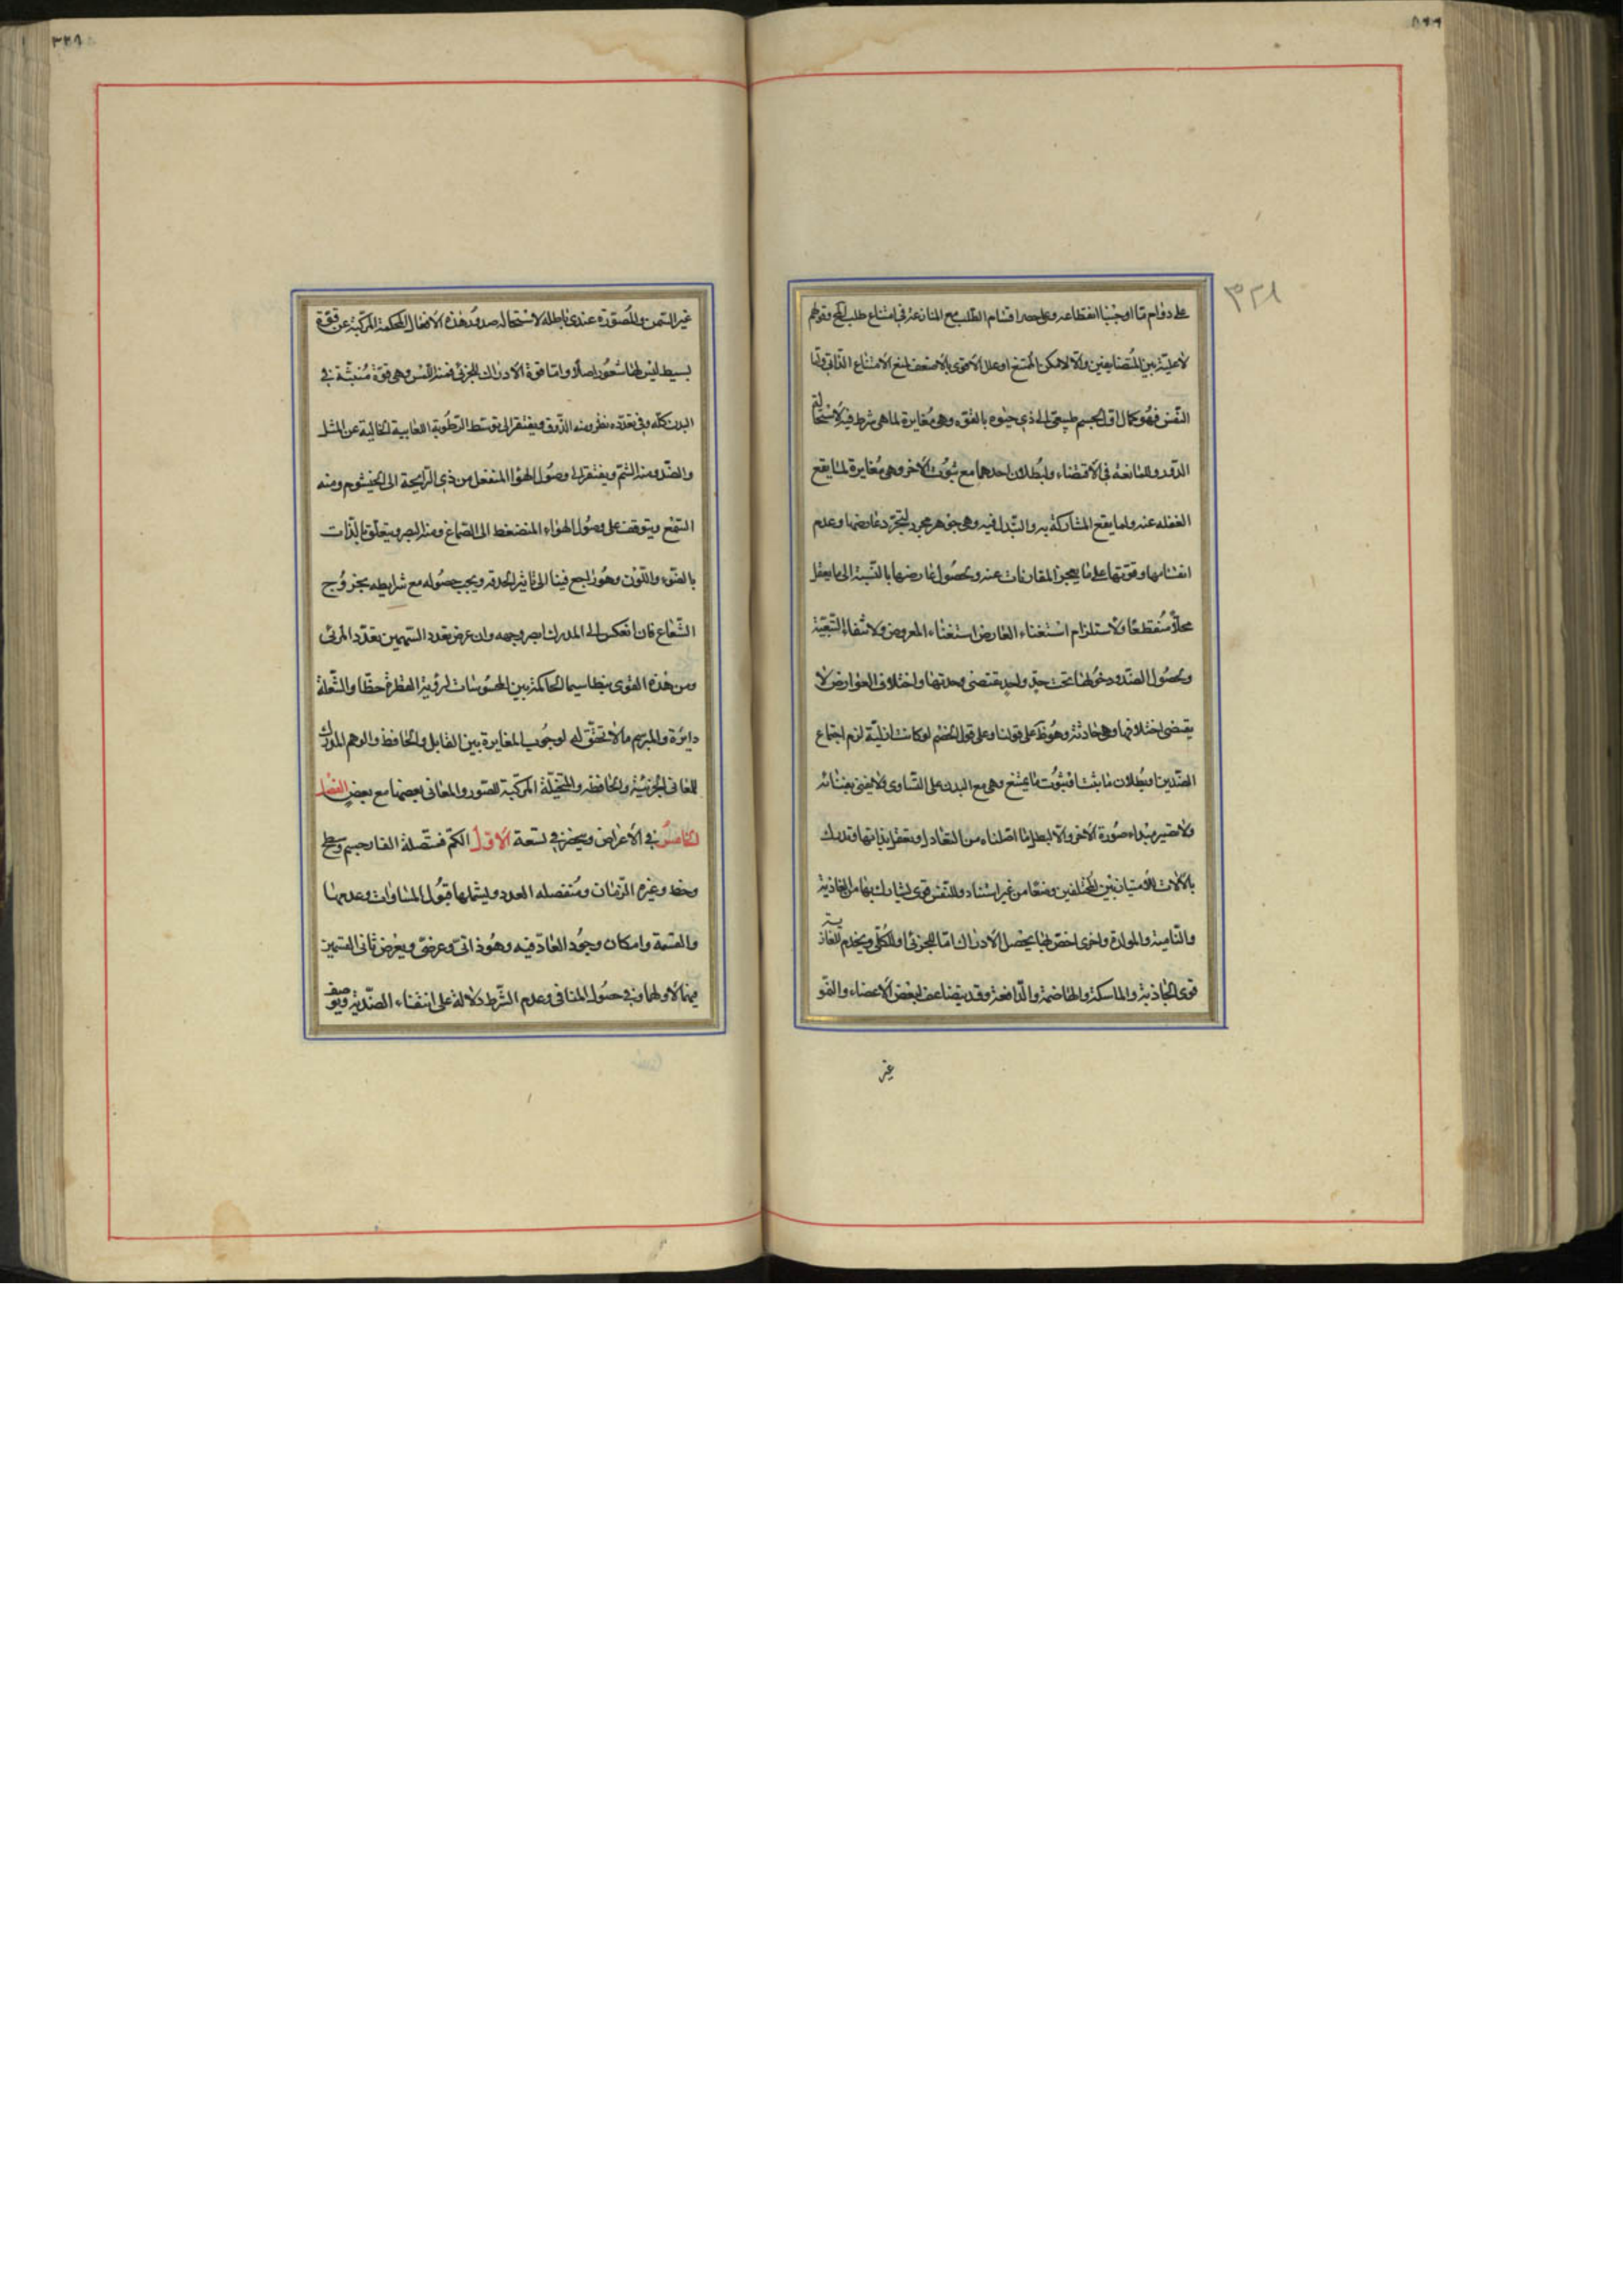 ٥٩٩
٣٢١
على دوام ما اوجبنا انقطاعه وعلى حصر اقسام الطلب مع المنازعة فى امتناع طلب المح وقولهم
لا علية بين المتضايفين والا لامكن الممتنع او علل الاقوى بالاضعف لمنع الامتناع الذاتى واما
النفس فهو كمال اول لجسم طبيعى الى ذى حيوة بالقوه وهى مغايرة لما هى شرط فيه لاستحالة
الدور وللمانعة فى الاقتضاء ولبطلان احدهما مع ثبوت الاخر وهى مغايرة لما يقع
الغفله عنه ولما يقع المشاركة به والتبدل فيه وهى جوهر مجرد لتجرد عارضها وعدم
انقسامها وقوتها على ما يعجز المقارنات عنه ويحصول عارضها بالنسبة الى ما يعقل
محلا منقطعا ولاستلزام استغناء العارض استغناء المعروض ولانتفاء التبعية
ويحصول الضد ودخولها تحت حد واحد يقتضى وحدتها واختلاف العوارض لا
يقتضى اختلافها وهى حادثة وهو ظ على قولنا وعلى قول الخصم لو كانت ازلية لزم اجتماع
الضدين او بطلان ما ثبت او ثبوت ما يمتنع وهى مع البدن على التساوى ولا يفنى بفنائه
ولا تصير مبداء صورة الاخر والا لبطل ما اصلناه من التعادل وتعقل بذاتها وتدرك
بالالات للامتياز بين المختلفين وضعا من غير استناد وللنفس قوى تشارك بها من الغاذية
والنامية والمولدة واخرى اخص بها يحصل الادراك اما للجزئى او للكلى ويخدم للغاذية
قوى الجاذبة والماسكة والهاضمة والدافعة وقد يتضاعف لبعض الاعضاء والقو
غير
غير السمن والمصورة عندى باطله لاستحاله صدور هذه الافعال المحكمة المركبة عن قوة
بسيط ليس لها شعور اصلا واما قوة الادراك للجزئى فمنه اللمس وهى قوة منبثة فى
البدن كله وفى تعدده نظر ومنه الذوق ويفتقر الى توسط الرطوبة اللعابية الخالية عن المثل
والضد ومنه الشم ويفتقر الى وصول الهوا المنفعل من ذى الرايحة الى الخيشوم ومنه
السمع ويتوقف على وصول الهواء المنضغط الى الصماخ ومنه البصر ويتعلق بالذات
بالضوء واللون وهو راجع فينا الى تاثير الحدقه ويجب حصوله مع شرايطه بخروج
الشعاع فان انعكس الى المدرك ابصر وجهه وان عرض تعدد السهمين تعدد المرئى
ومن هذه القوى بنطاسيا الحاكمة بين المحسوسات لرؤية القطرة خطا والشعلة
دايرة والمبرسم ما لا تحقق له لوجوب المغايرة بين القابل والحافظ والوهم المدرك
للمعانى الجزئية والحافظه والمتخيلة المركبة للصور والمعانى بعضها مع بعض الفصل
الخامس فى الاعراض وينحصر فى تسعة الاول الكم فمتصله القار جسم وسطح
وخط وغيره الزمان ومنفصله العدد ويشملها قبول المساوات وعدمها
والقسمة وامكان وجود العاد فيه وهو ذاتى وعرضى ويعرض ثانى القسمين
فيهما لاولهما وفى حصول المنافى وعدم الشرط دلالة على انتفاء الضدية ويوصف